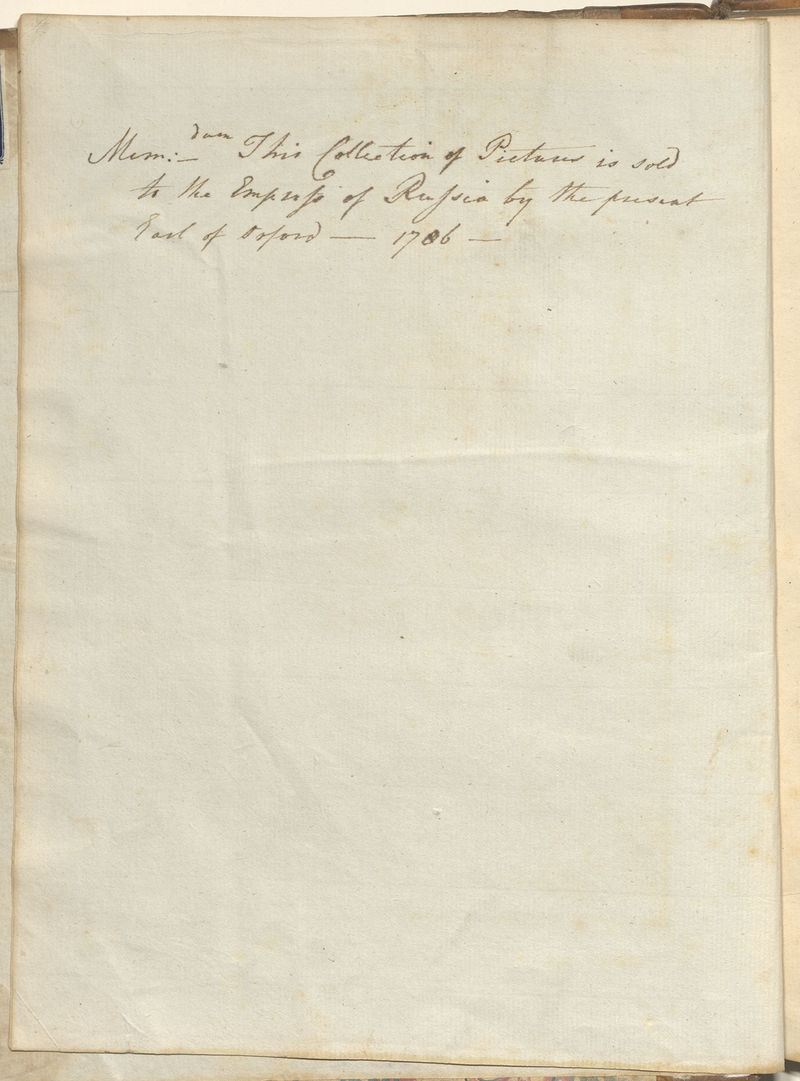 Mem:dum This Collection of Pictures is sold
to the Empreſs of Ruſsia by the present
Earl of Orford — 1786 —